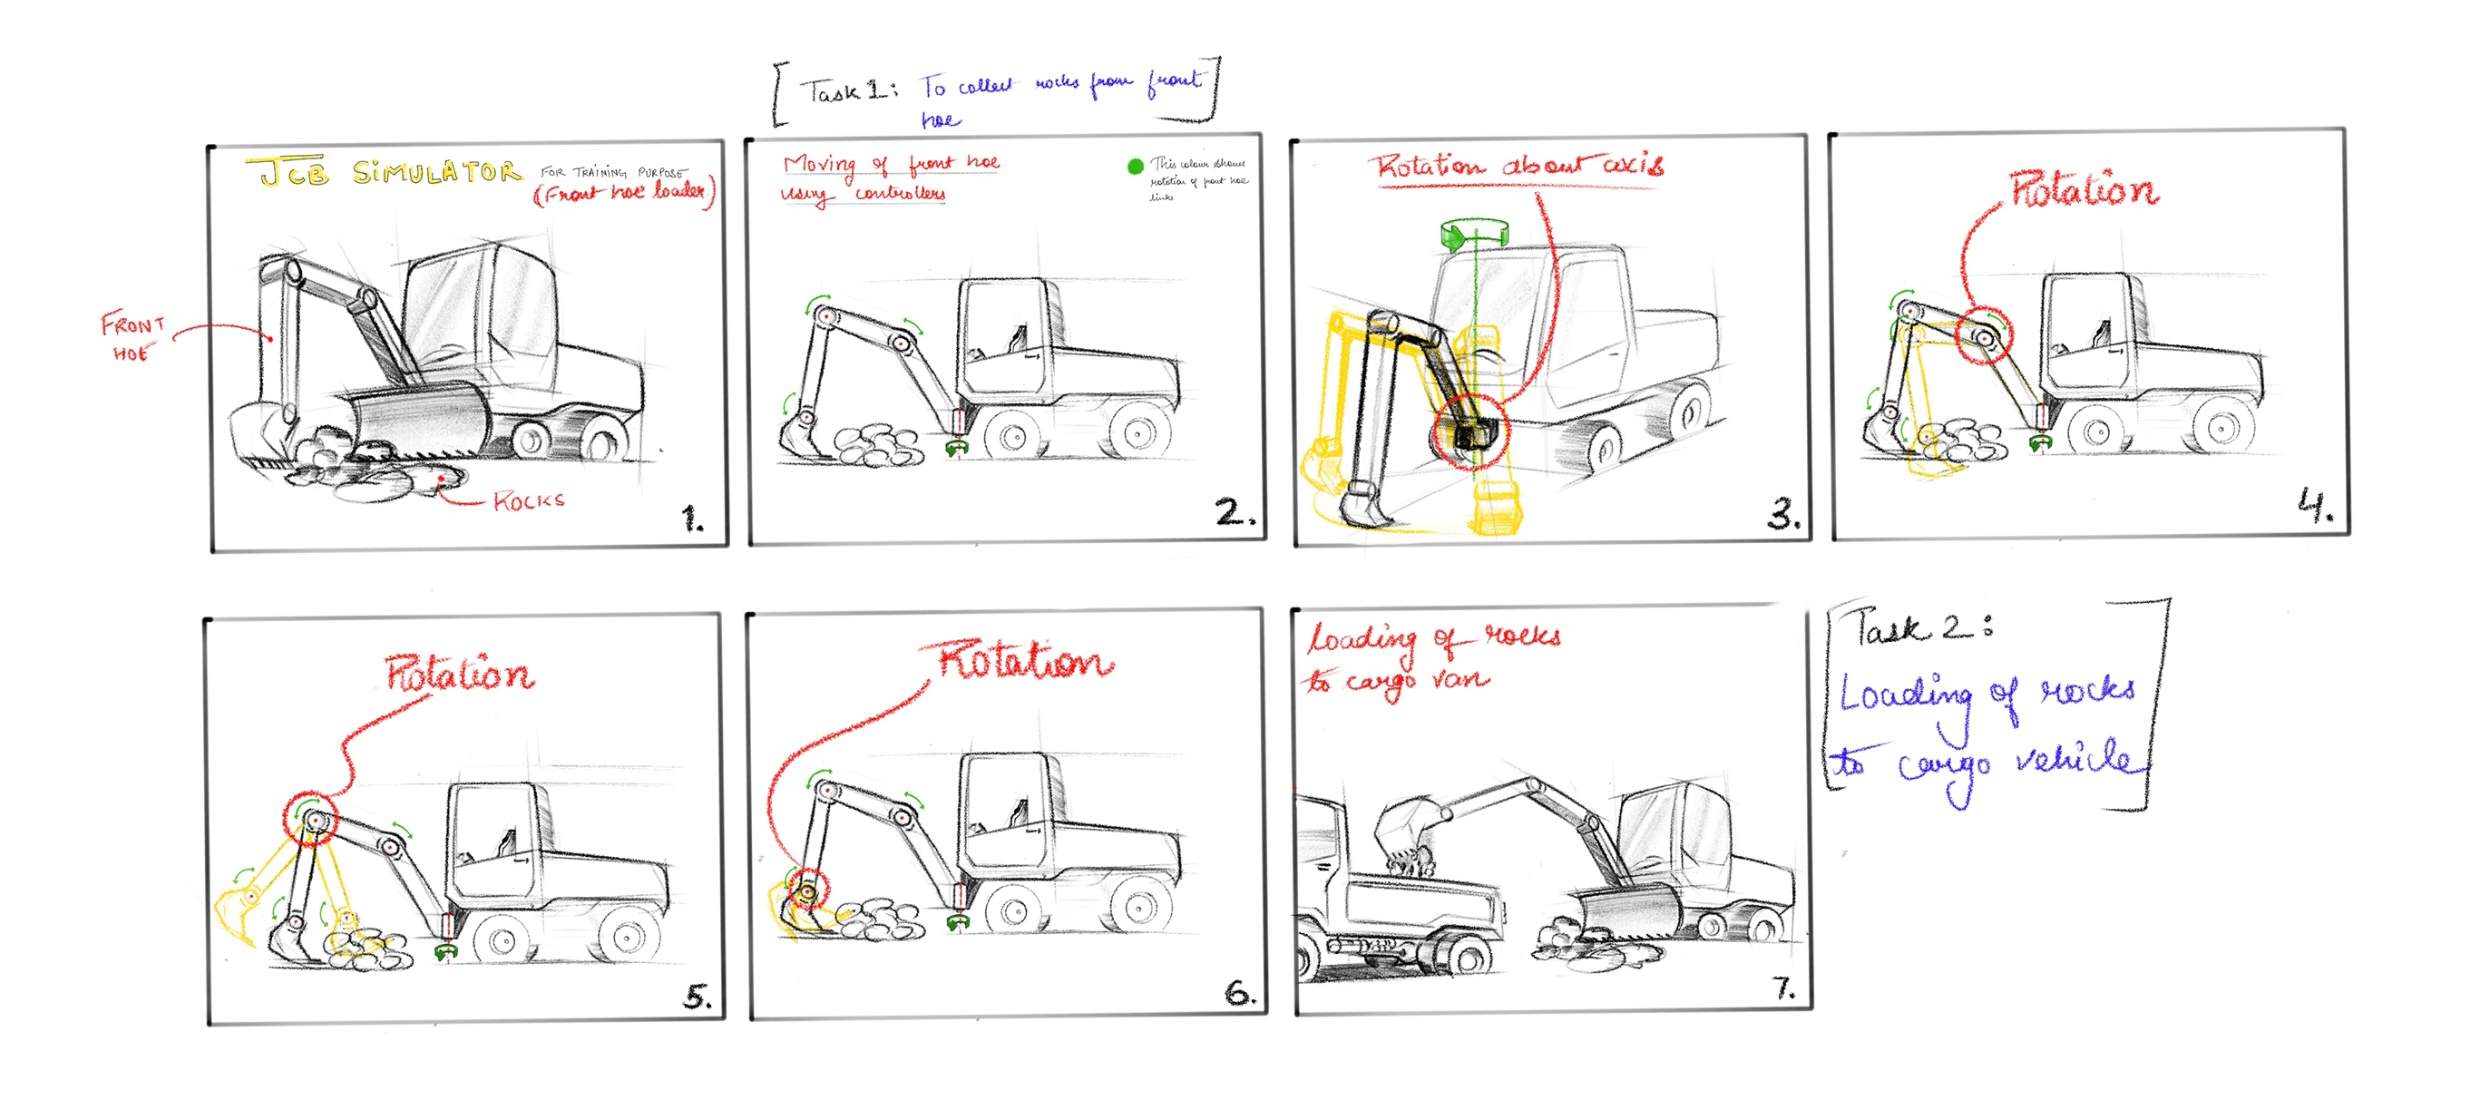 [Task 1: To collect rocks from front
hoe]
JCB SIMULATOR FOR TRAINING PURPOSE
(Front hoe loader)
FRONT
HOE
ROCKS
1.
Moving of front hoe
using controllers
This colour shows
rotation of front hoe
links
2.
Rotation about axis
3.
Rotation
4.
Rotation
5.
Rotation
6.
Loading of rocks
to cargo van
7.
[Task 2:
Loading of rocks
to cargo vehicle]